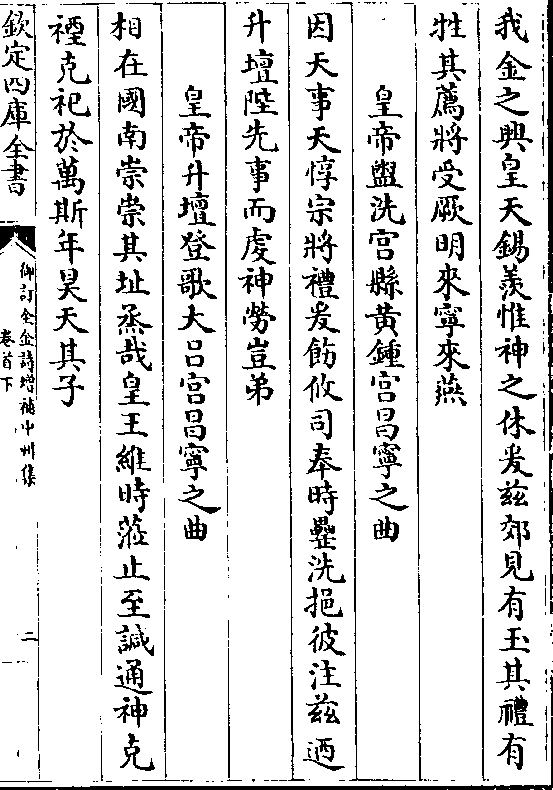 我金之興皇天錫羨惟神之休爰兹郊見有玉其禮有
牲其薦將受厥明來寧來燕
皇帝盥洗宫縣黄鍾宫昌寧之曲
因天事天惇宗將禮爰飭攸司奉時罍洗挹彼注兹迺
升壇陛先事而虔神勞豈弟
皇帝升壇登歌大吕宫昌寧之曲
相在國南崇崇其址烝哉皇王維時蒞止至諴通神克
禋克祀於萬斯年昊天其子
欽定四庫全書
御訂全金詩增補中州集
卷首下
二